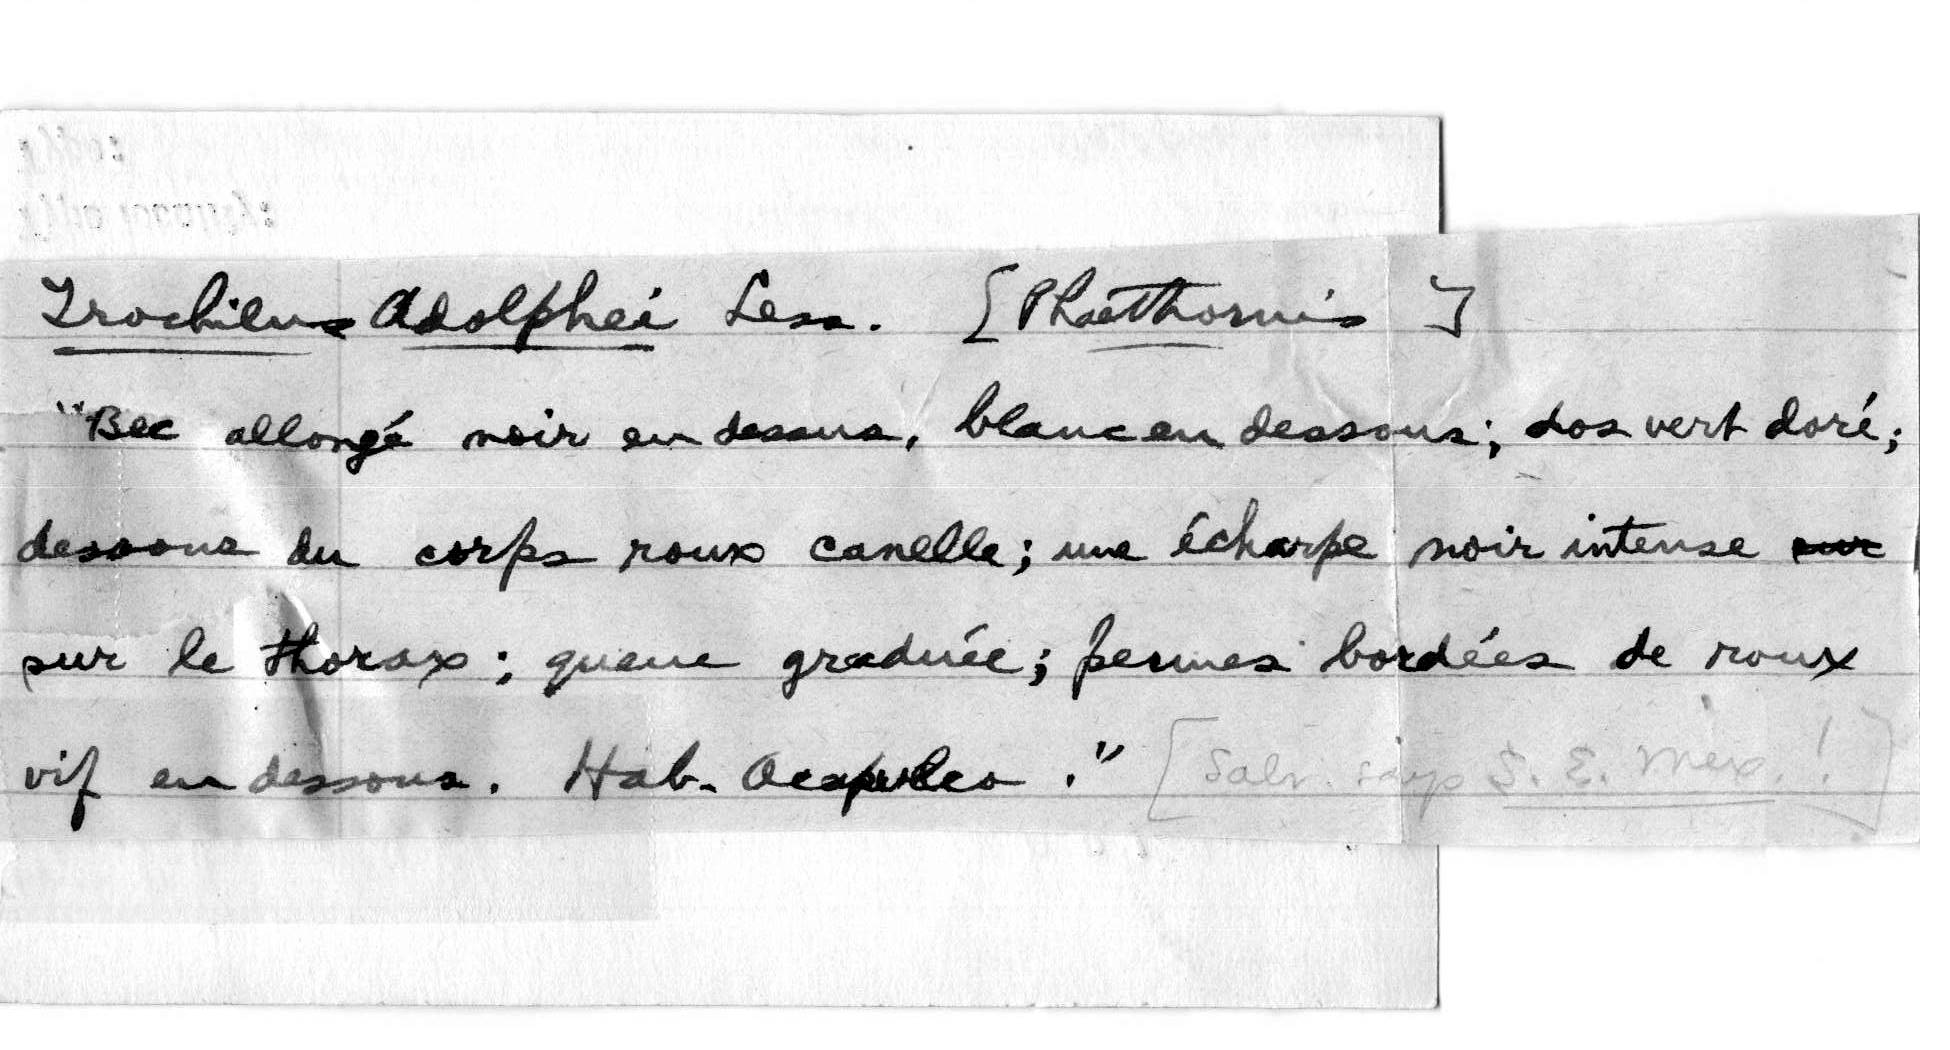 Trochilus Adolphei Less. [Phaethornis]
"Bec allongé noir en dessus, blanc en dessous; dos vert doré;
dessous du corps roux canelle; une écharpe noir intense sur
sur le thorax; queue graduée; pennes bordées de roux
vif en dessous. Hab. Acapulco." [Salv. says S. E. Mex.!]